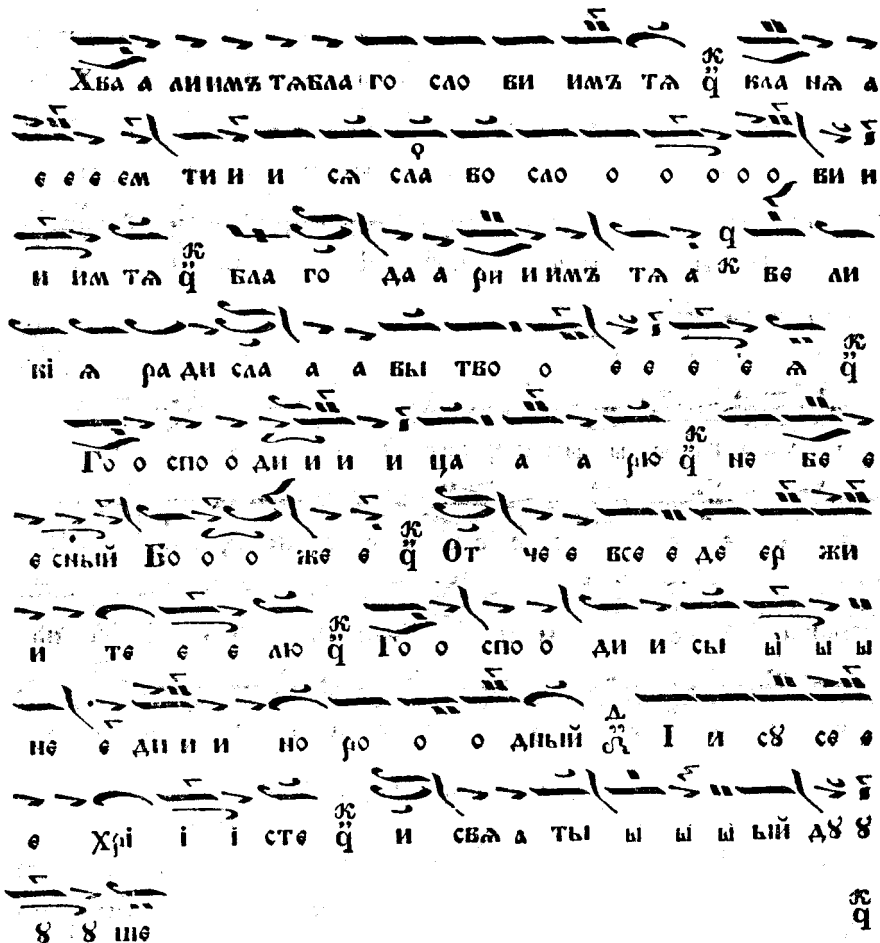 Хва а ли имъ тѧ бла го сло ви имъ тѧ К q кла нѧ а
е е е ем ти и и сѧ сла во сло о о о о о ви и
и им тѧ К q бла го да а ри и имъ тѧ а q К ве ли
кі ѧ ра ди сла а а вы тво о е е е е ѧ К q
Го о спо о ди и и и ца а а рю К q не бе е
е сный Бо о о же е К q От че е все е де ер жи
и те е е лю К q Го о спо о ди и сы ы ы ы
не е ди и и но ро о о дный Д І и сꙋ се е
е Хрі і і сте К q и свѧ а ты ы ы ы ый дꙋ ꙋ
ꙋ ꙋ ше К q